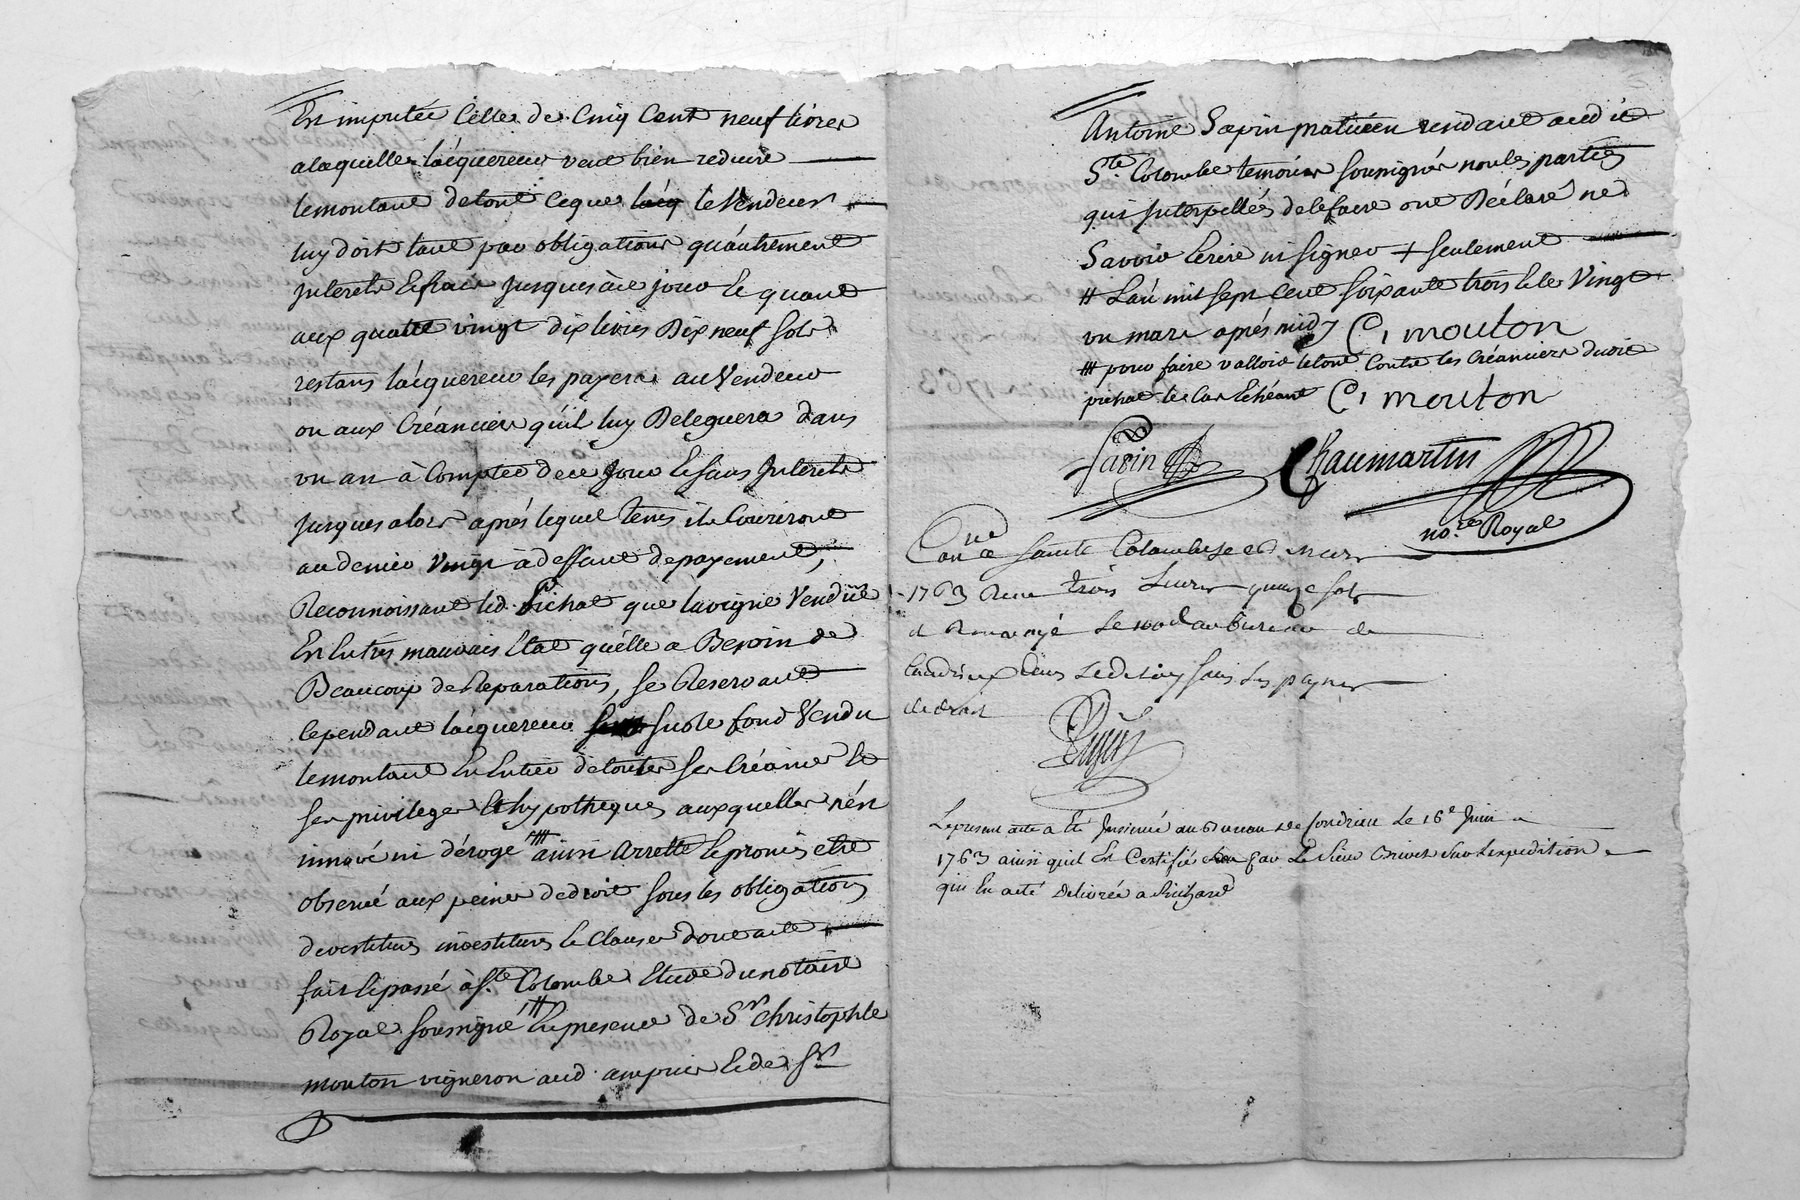 En imputée celle de Cinq Cent neuf livres
alaquelle lacquereur veut bien reduire
lemontant detout ceque lacq le Vendeur
luy doit tant par obligations quáutrement
Interets & frais Jusquesàce jour & quant
aux quatre vingt dix livres Dix neuf sols
restans lacquereur les payera au Vendeur
ou aux Créanciers qúil luy Deleguera dans
un an à Compter dece Jour & sans Interets
Jusques alors après lequel tems ils Coureront
audenier Vingt à deffaut depayement,
Reconnoissant led. Pichat que lavigne Vendüe
En En très mauvais Etat qúelle a Besoin de
Beaucoup de Reparations, se Reservant
Cependant lacquereur sur le fond Vendu
lemontant En Entier detoutes ses Créances &
ses privileges & hypotheques auxquelles n'én
innové ni déroge #### ainsi arretté & promis etre
observé aux peines dedroit sous les obligations
devestitures investitures & Clauses dont acte
fait & passé à Ste Colombe Etude du notaire
Royal soussigné ### En presence de Sr christophle
mouton vigneron aud. ampuis & de Sr
Antoine Savin praticien residant aud it
Ste Colombe temoins soussignés non les parties
qui Interpellés de le faire ont Déclaré ne
Savoir Ecrire ni signer + seulement
# Lán mil sept cent soixante trois & le Vingt
un mars après midy C, mouton
### pour faire valloir letout Contre les Créanciers dudit
pichat le Cas Echéant C, mouton
Savin Chaumartin
no.re Royal
Con.lé a Sainte Colombe le 28 mars
1763 Reçu trois Livres quinze sols
& Renvoyé Le au bureau de
Condrieu dans Le delay sous Les peynes
de droit
Le present acte a Eté Insinué au Bureau de Condrieu Le 16e Juin
1763 ainsi quil Est Certifié par Le Sieur sur Lexpedition
qui En a eté Delivrée a Richard